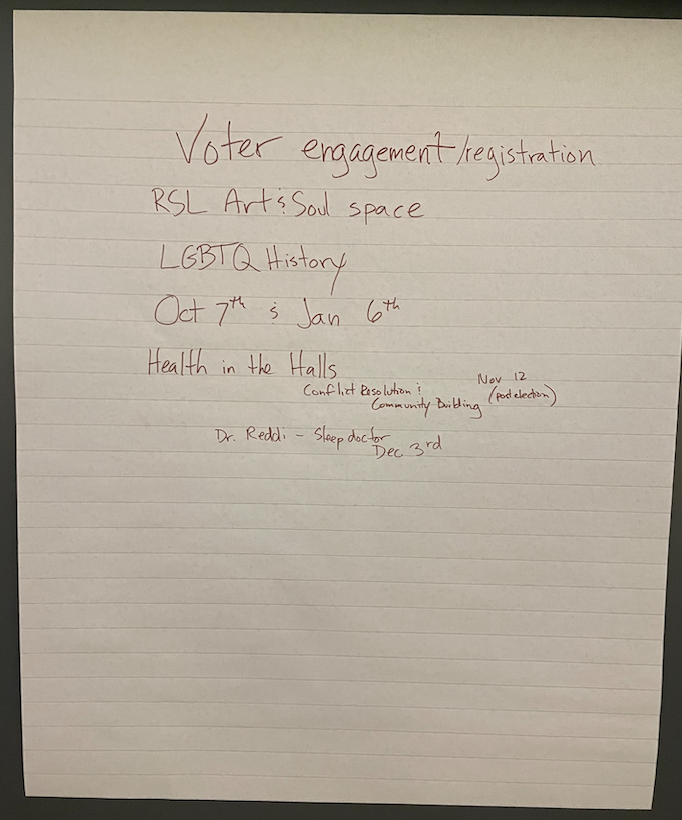 Voter engagement/registration
RSL Art & Soul space
LGBTQ History
Oct 7th & Jan 6th
Health in the Halls
Conflict Resolution & Nov 12
Community Building (post election)
Dr. Reddi - Sleep doctor
Dec 3rd